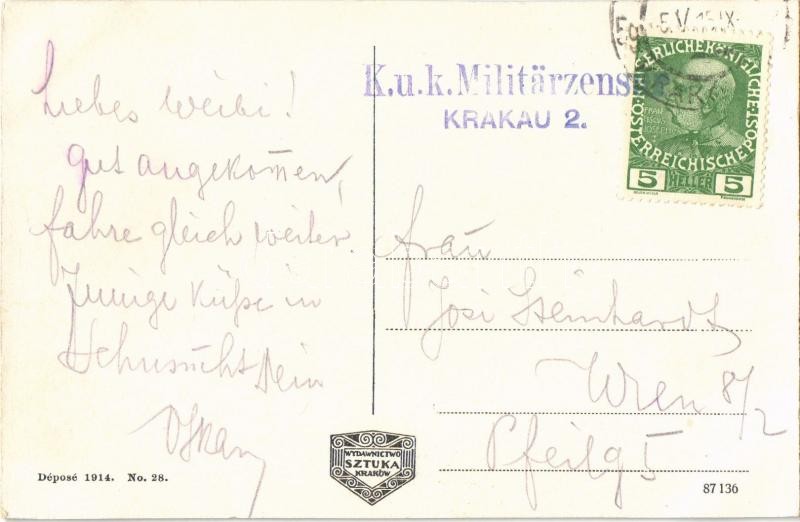 Liebes Weibi!
Gut angekommen,
fahre gleich weiter.
Innige Küße in
Sehnsucht Dein
Oskar
K.u.k. Militärzensur
KRAKAU 2.
5.V.15.IX
KAISERLICHE KÖNIGLICHE
ÖSTERREICHISCHE POST
FRANCISCUS
JOSEPH I
5 HELLER 5
Frau
Josi Steinhardt
Wien 8/2
Pfeilg 5
WYDAWNICTWO
SZTUKA
KRAKÓW
Déposé 1914. No. 28.
87136